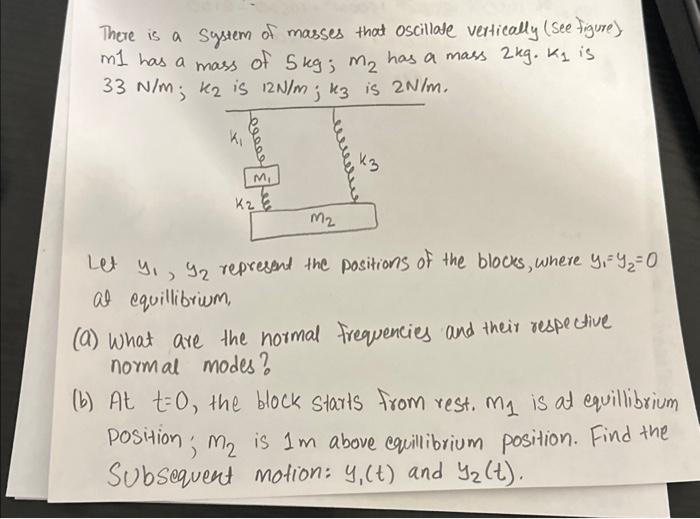 There is a system of masses that oscillate vertically (see figure)
m1 has a mass of 5kg; m2 has a mass 2kg. K1 is
33 N/m; k2 is 12N/m; k3 is 2N/m.
K1
K3
M1
K2
M2
Let y1, y2 represent the positions of the blocks, where y1=y2=0
at equillibrium,
(a) What are the normal frequencies and their respective
normal modes?
(b) At t=0, the block starts from rest. m1 is at equillibrium
position; m2 is 1m above equillibrium position. Find the
Subsequent motion: y1(t) and y2(t).